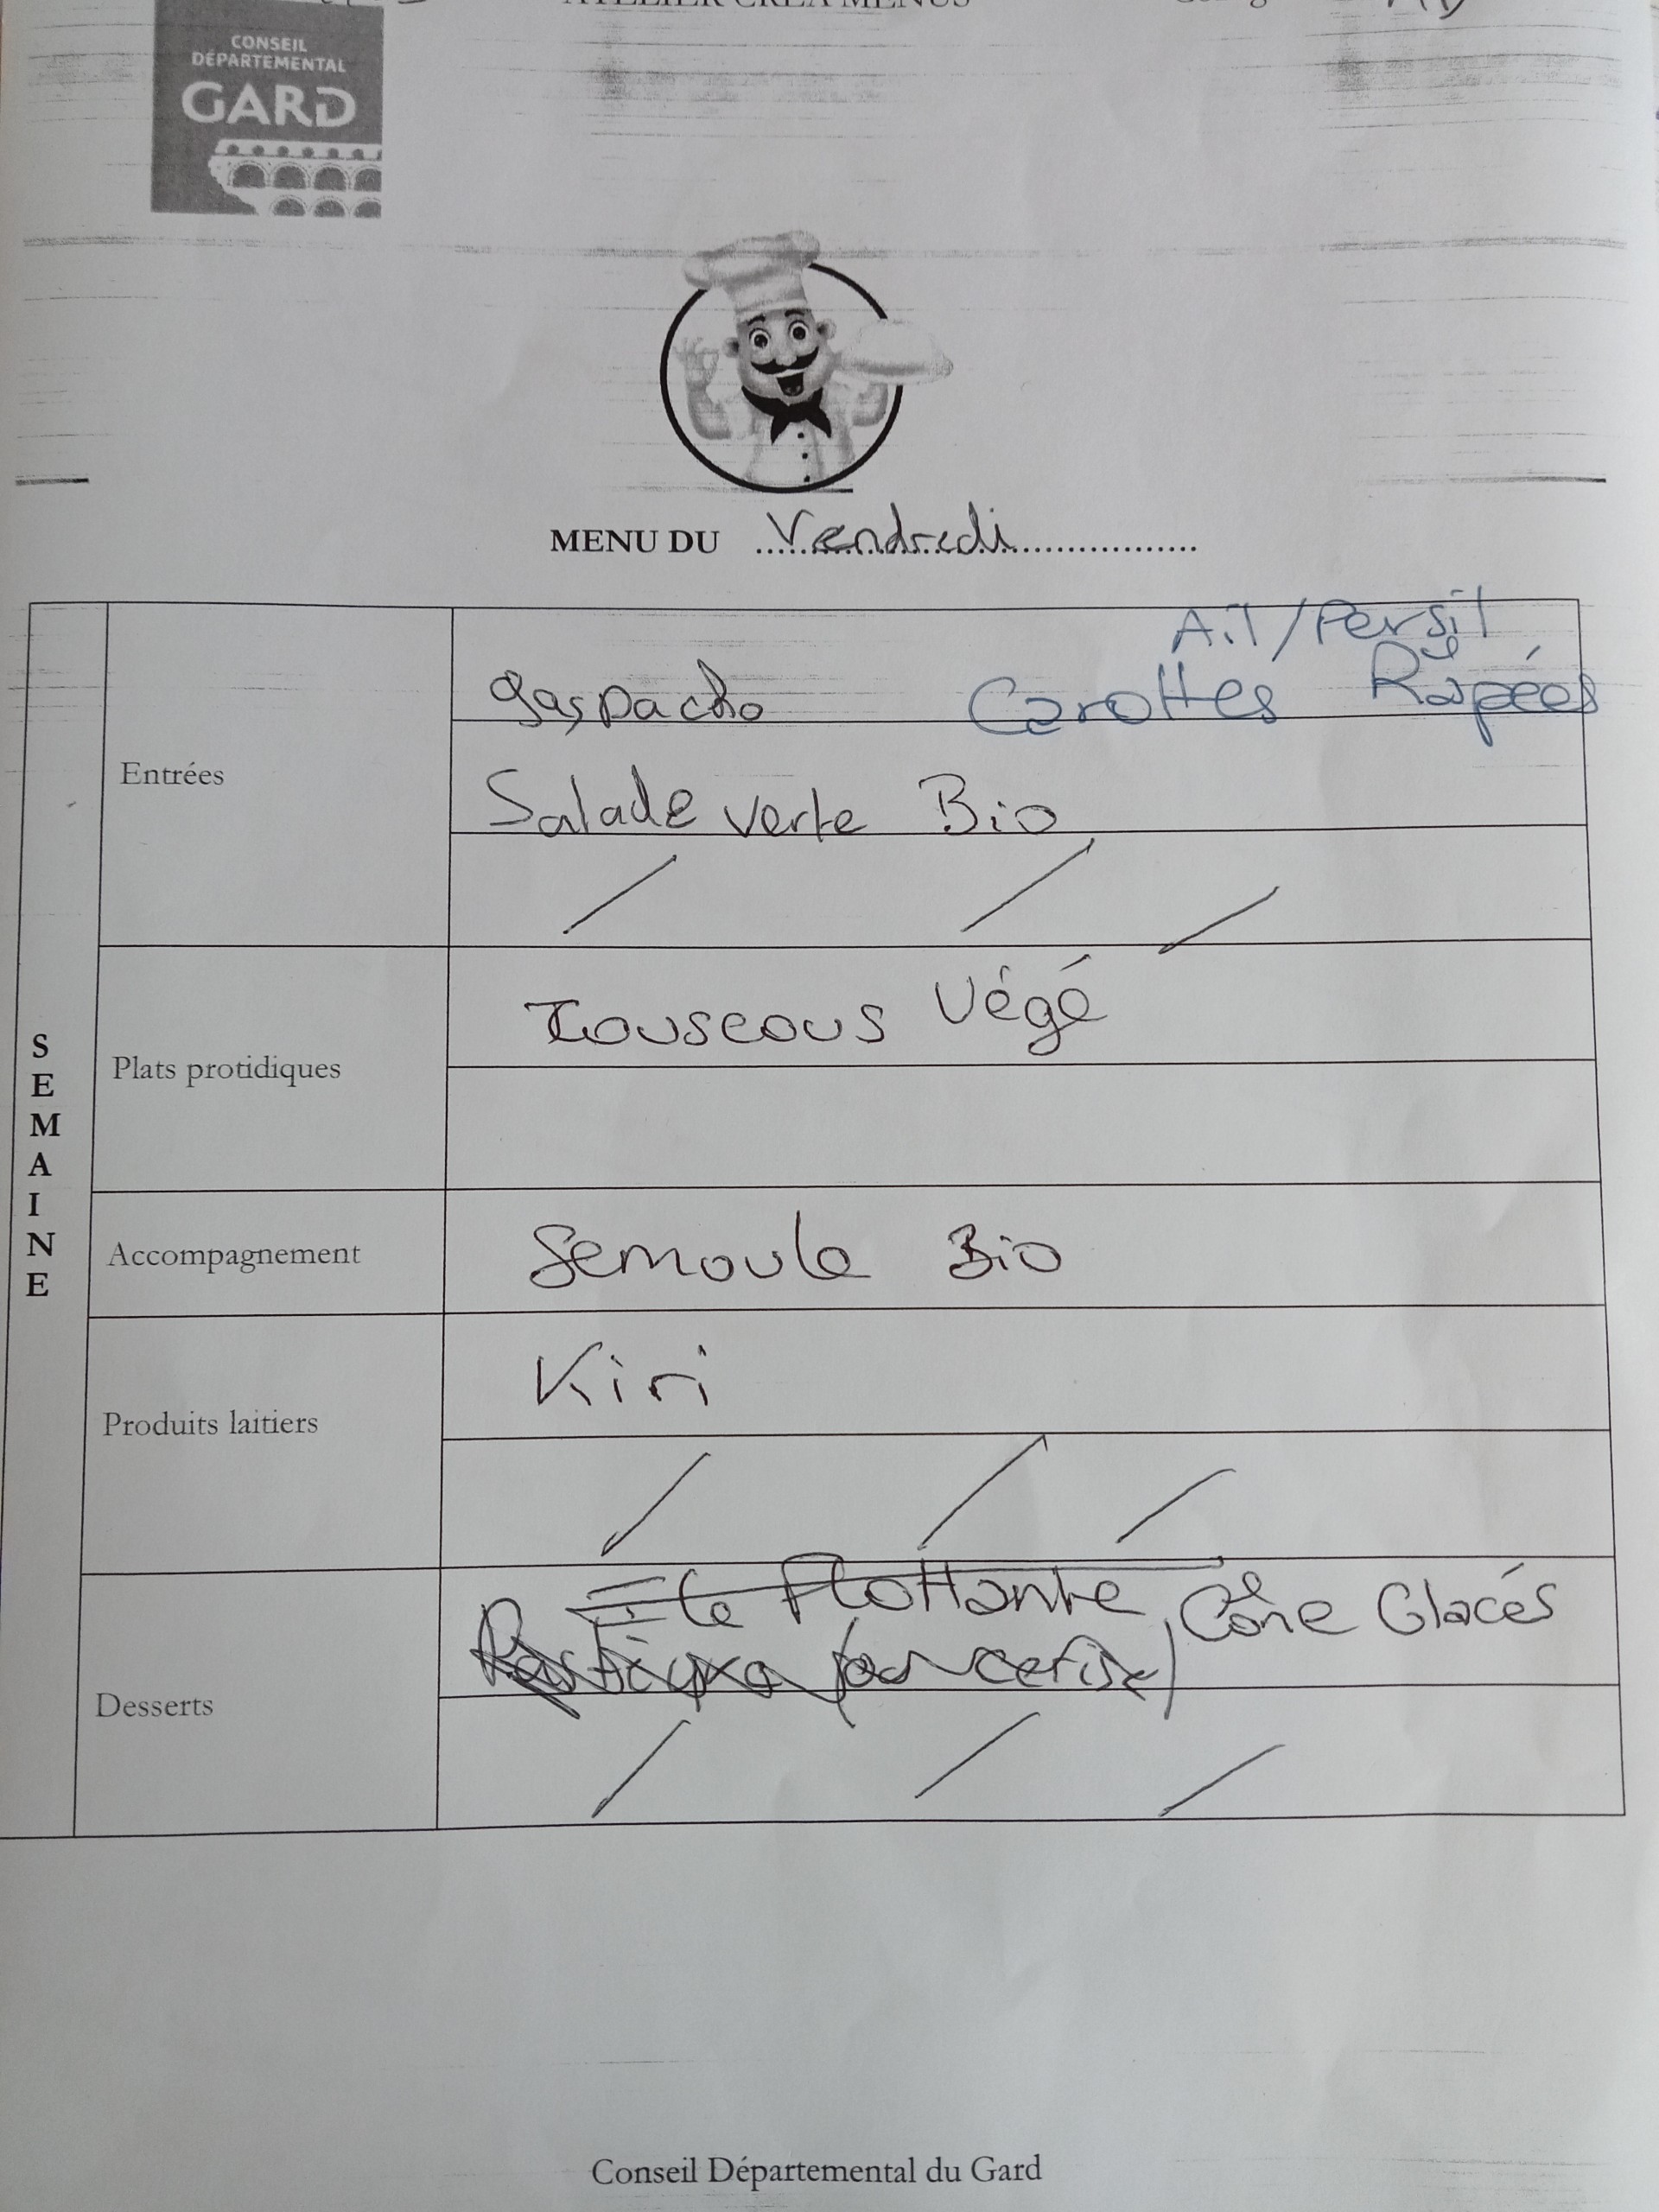 ATELIER CREA MENUS
CONSEIL
DÉPARTEMENTAL
GARD
MENU DU Vendredi
Ail/Persil
gaspacho Carottes Râpées
Entrées
Salade verte Bio
Couscous Végé
Plats protidiques
SEMAINE
Accompagnement Semoule Bio
Kiri
Produits laitiers
Ile Flottante Cône Glacés
(ou cerise)
Desserts
Conseil Départemental du Gard